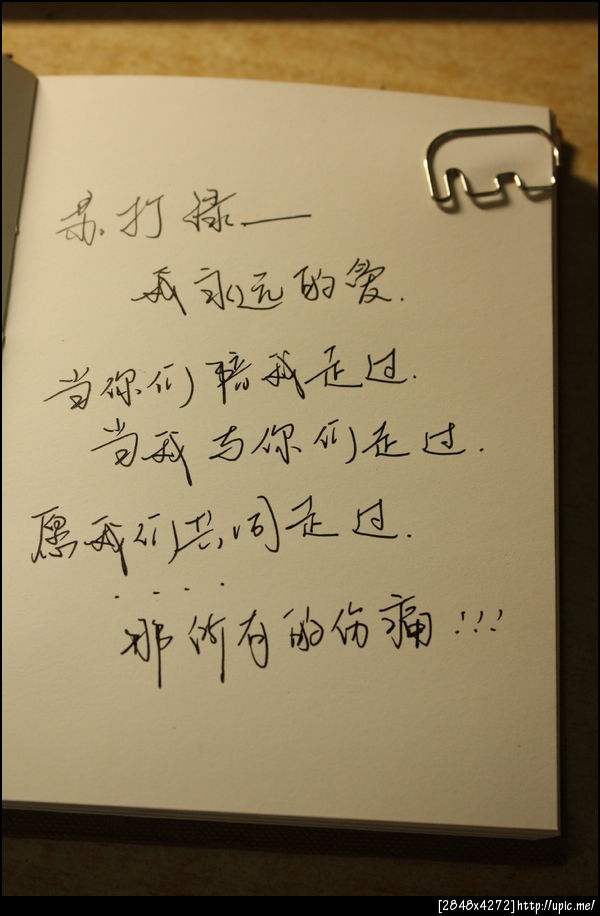 苏打绿——
我永远的爱.
当你们陪我走过.
当我与你们走过.
愿我们共同走过.
....
那所有的伤痛!!!
[2848x4272]http://upic.me/